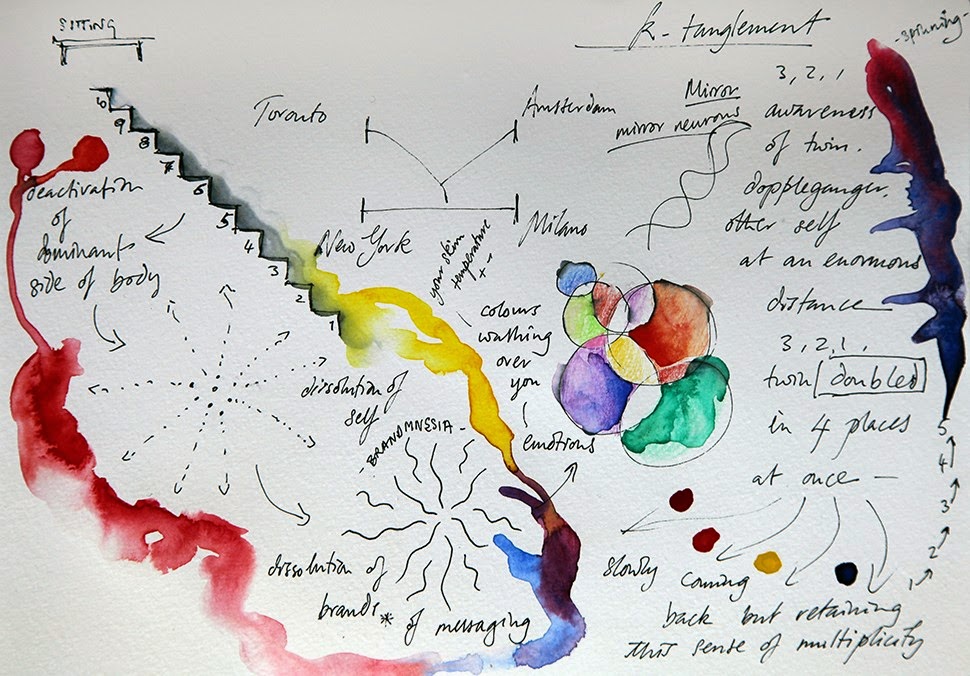 SITTING
k-tanglement
-spinning-
10
9
8
7
6
5
4
3
2
1
Toronto
Amsterdam
New York
Milano
Mirror
mirror neurons
deactivation
of
dominant
side of body
your skin
temperature
+ -
colours
washing
over
you
emotions
dissolution of
self
-BRANDMNESIA-
dissolution of
brands*
of messaging
3, 2, 1
awareness
of twin.
doppleganger.
other self
at an enormous
distance
3, 2, 1,
twin doubled
in 4 places
at once —
slowly coming
back but retaining
this sense of multiplicity
5
4
3
2
1